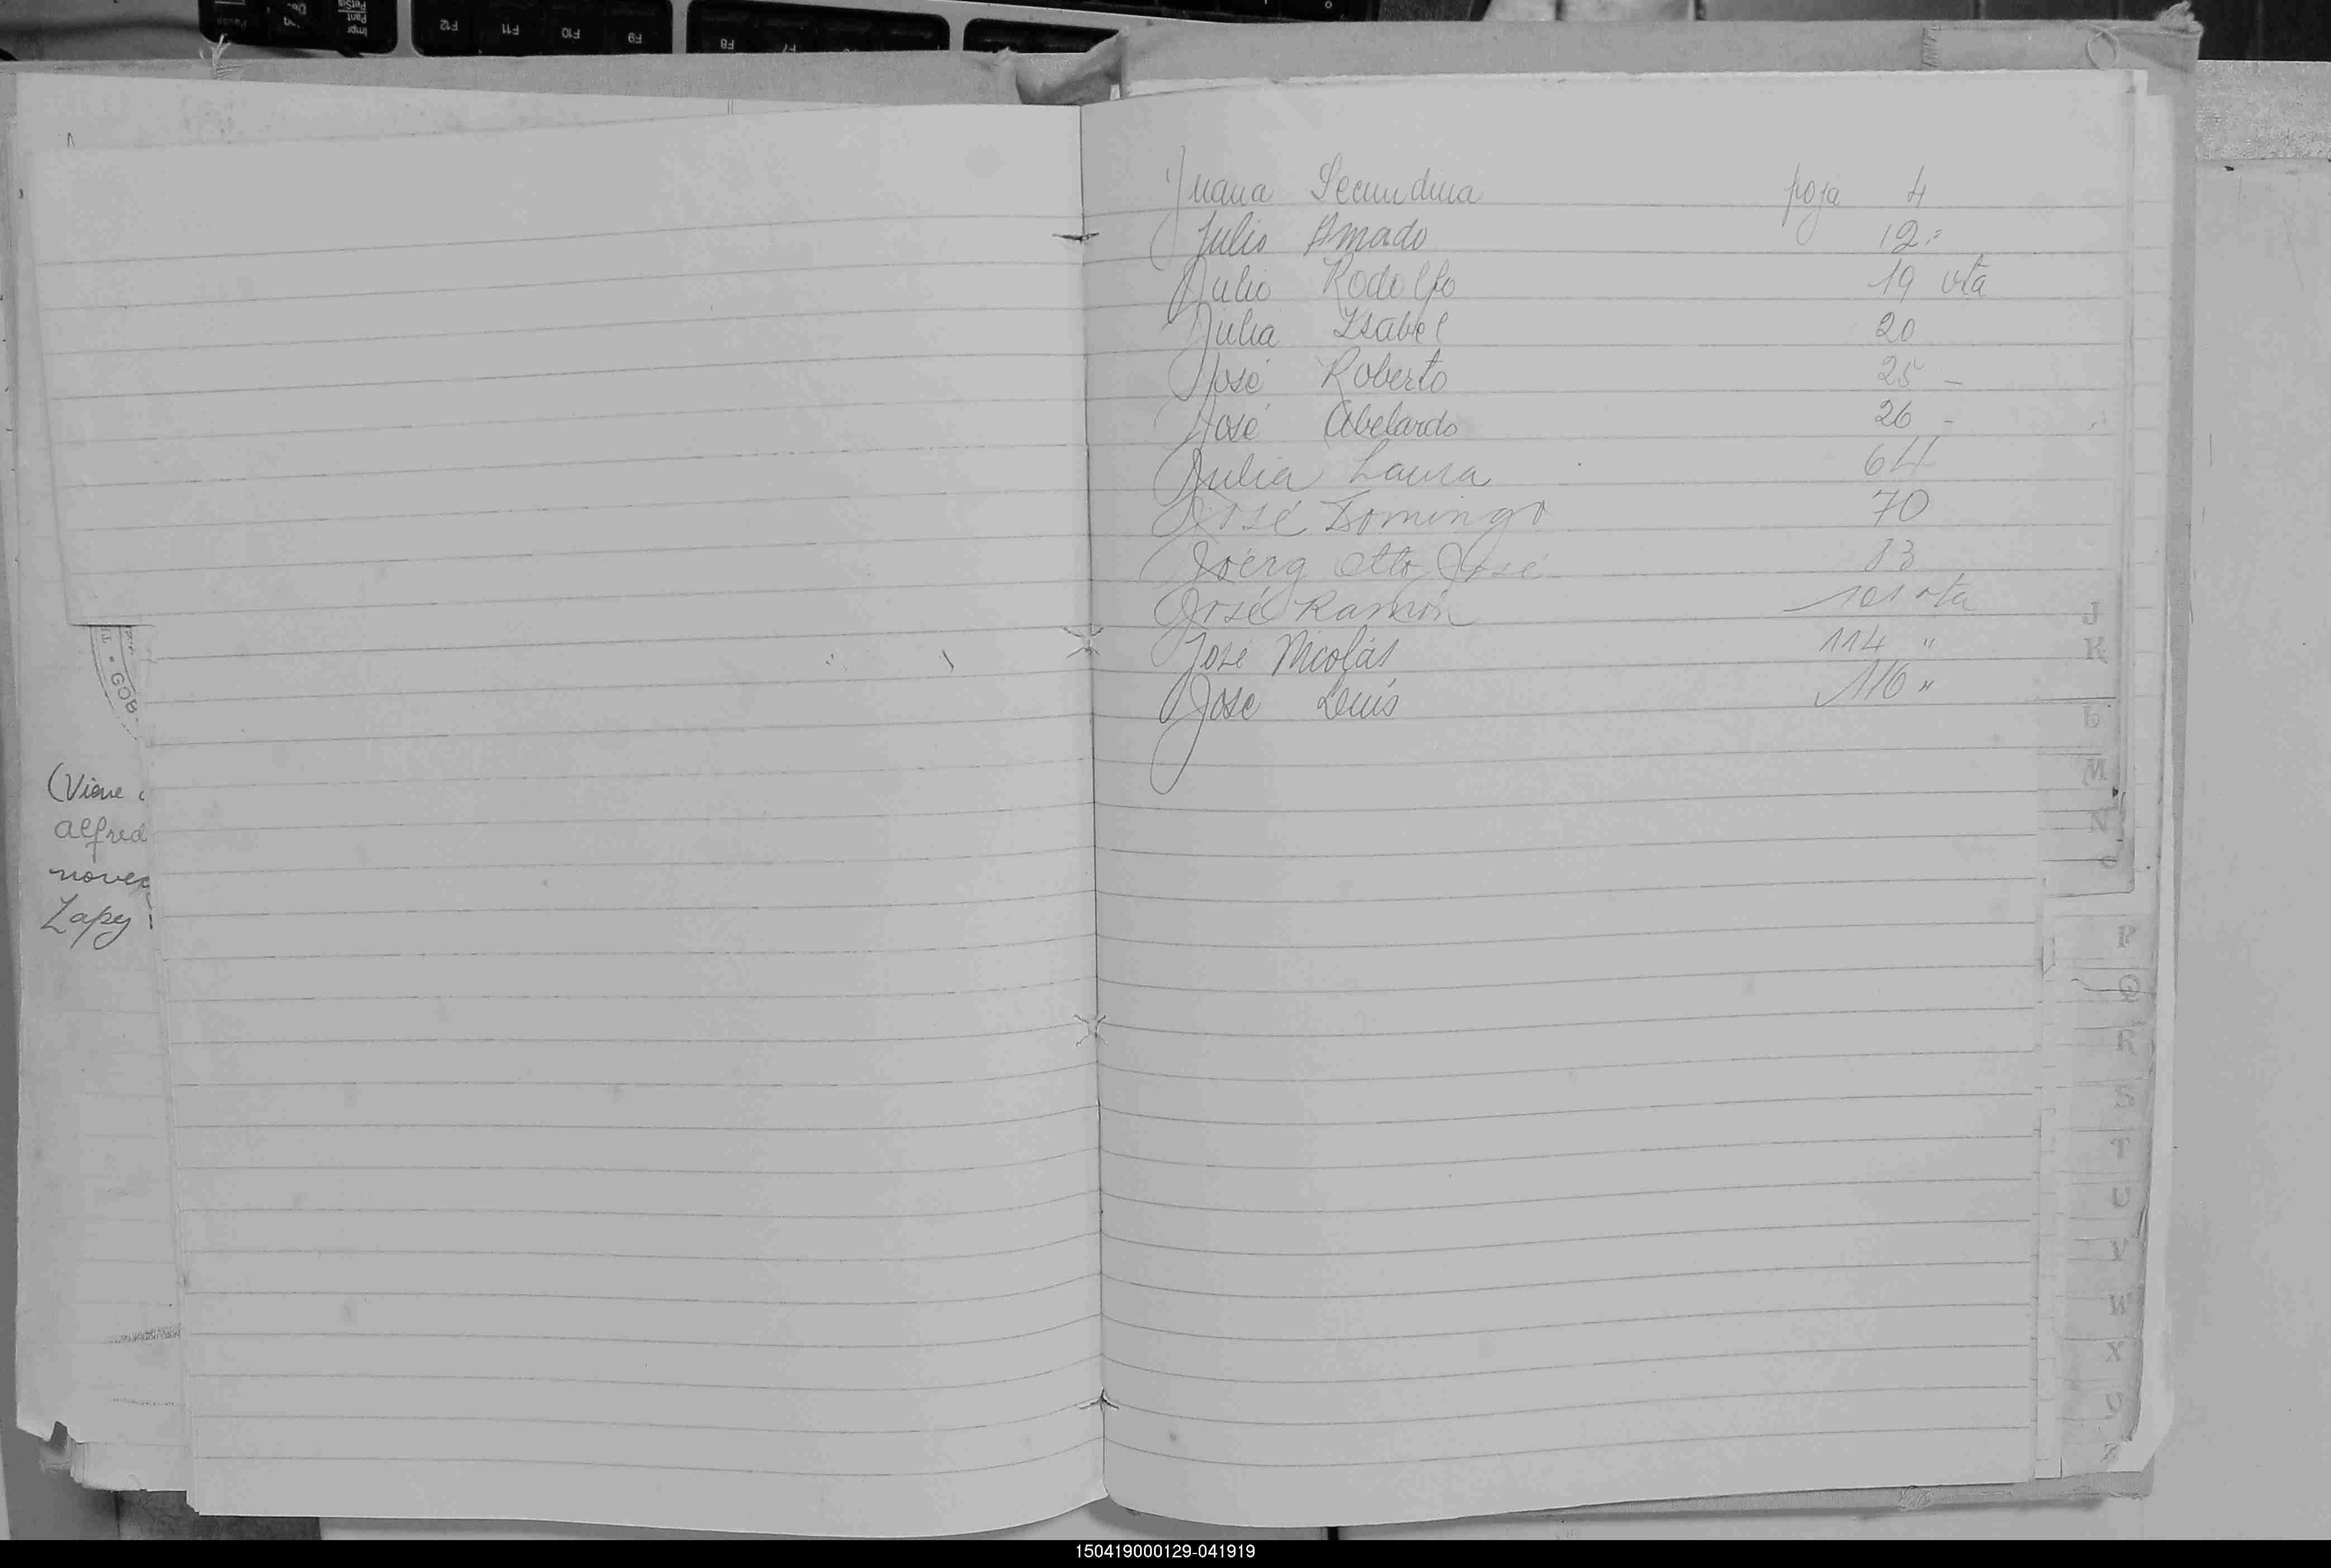 (Viene
alfred
novec
Zapy
GOB
Juana Secundina foja 4
Julio Amado 12 :=
Julio Rodolfo 19 vta
Julia Isabel 20
José Roberto 25 -
José Abelardo 26 -
Julia Laura 64
José Domingo 70
Joerg Otto José 83
José Ramón 101 vta
José Nicolás 114 "
Jose Luis 116 "
J
K
L
M
N
O
P
Q
R
S
T
U
V
W
X
F12 F11 F10 F9 F8 F7
Impr
Pant
PetSis
150419000129-041919